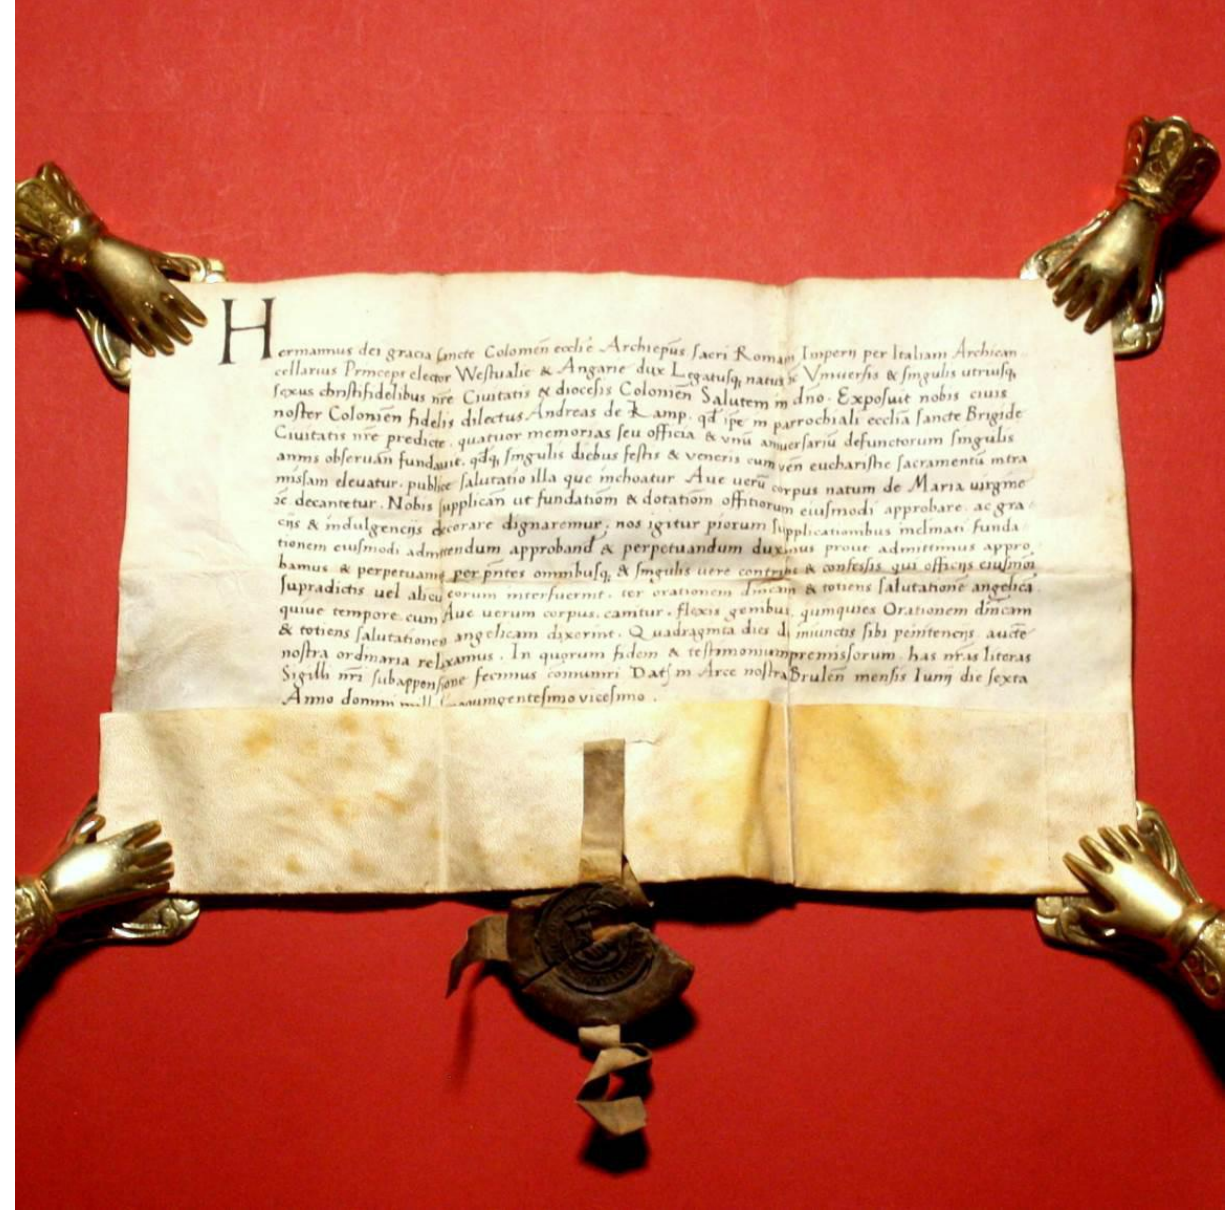 Hermannus dei gracia sancte Colonien̄ eccliē Archiep̄us sacri Romani Imperij per Italiam Archican
cellarius Princeps elector Westualie & Angarie dux Legatusq; natus &c Vniuersis & singulis utriusq;
sexus christifidelibus nr̄e Ciuitatis & diocesis Colonien̄ Salutem in dno. Exposuit nobis ciuis
noster Colonien̄ fidelis dilectus Andreas de Kamp. qd̄ ip̄e in parrochiali ecclīa sancte Brigide
Ciuitatis nr̄e predicte. quatuor memorias seu officia & vnū anniuersariū defunctorum singulis
annis obseruan̄ fundauit. qd̄q; singulis diebus festis & veneris cum ven̄ eucharistie sacramentū intra
missam eleuatur. publice salutatio illa que inchoatur Aue uerū corpus natum de Maria uirgine
&c decantetur. Nobis supplican̄ ut fundatiōm & dotatiōm offitiorum eiusmodi approbare ac gra
cijs & indulgencijs decorare dignaremur. nos igitur piorum supplicationibus inclinati funda
tionem eiusmodi admittendum approband̄ & perpetuandum duximus prout admittimus appro
bamus & perpetuamus per pn̄tes omnibusq; & singulis uere contritis & confessis qui officijs eiusmoi
supradictis uel alicui eorum interfuerint. ter orationem dn̄icam & totiens salutationē angelicā
quiue tempore. cum Aue uerum corpus. canitur. flexis genibus. quinquies Orationem dn̄icam
& totiens salutationem angelicam dixerint. Quadraginta dies de iniunctis sibi penitencijs aucte
nostra ordinaria relaxamus. In quorum fidem & testimonium premissorum. has nr̄as literas
Sigilli nr̄i subappensione fecimus comuniri Dat̄ in Arce nostra Brulen̄ mensis Iunij die sexta
Anno domini quingentesimo vicesimo.